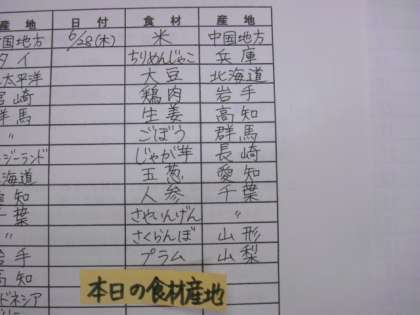 産地 日付 食材 産地
国地方 6/28(木) 米 中国地方
タイ ちりめんじゃこ 兵庫
太平洋 大豆 北海道
宮崎 鶏肉 岩手
群馬 生姜 高知
〃 ごぼう 群馬
ージーランド じゃが芋 長崎
海道 玉葱 愛知
知 人参 千葉
葉 さやいんげん 〃
〃 さくらんぼ 山形
岩手 プラム 山梨
高知
ドネシア
本日の食材産地